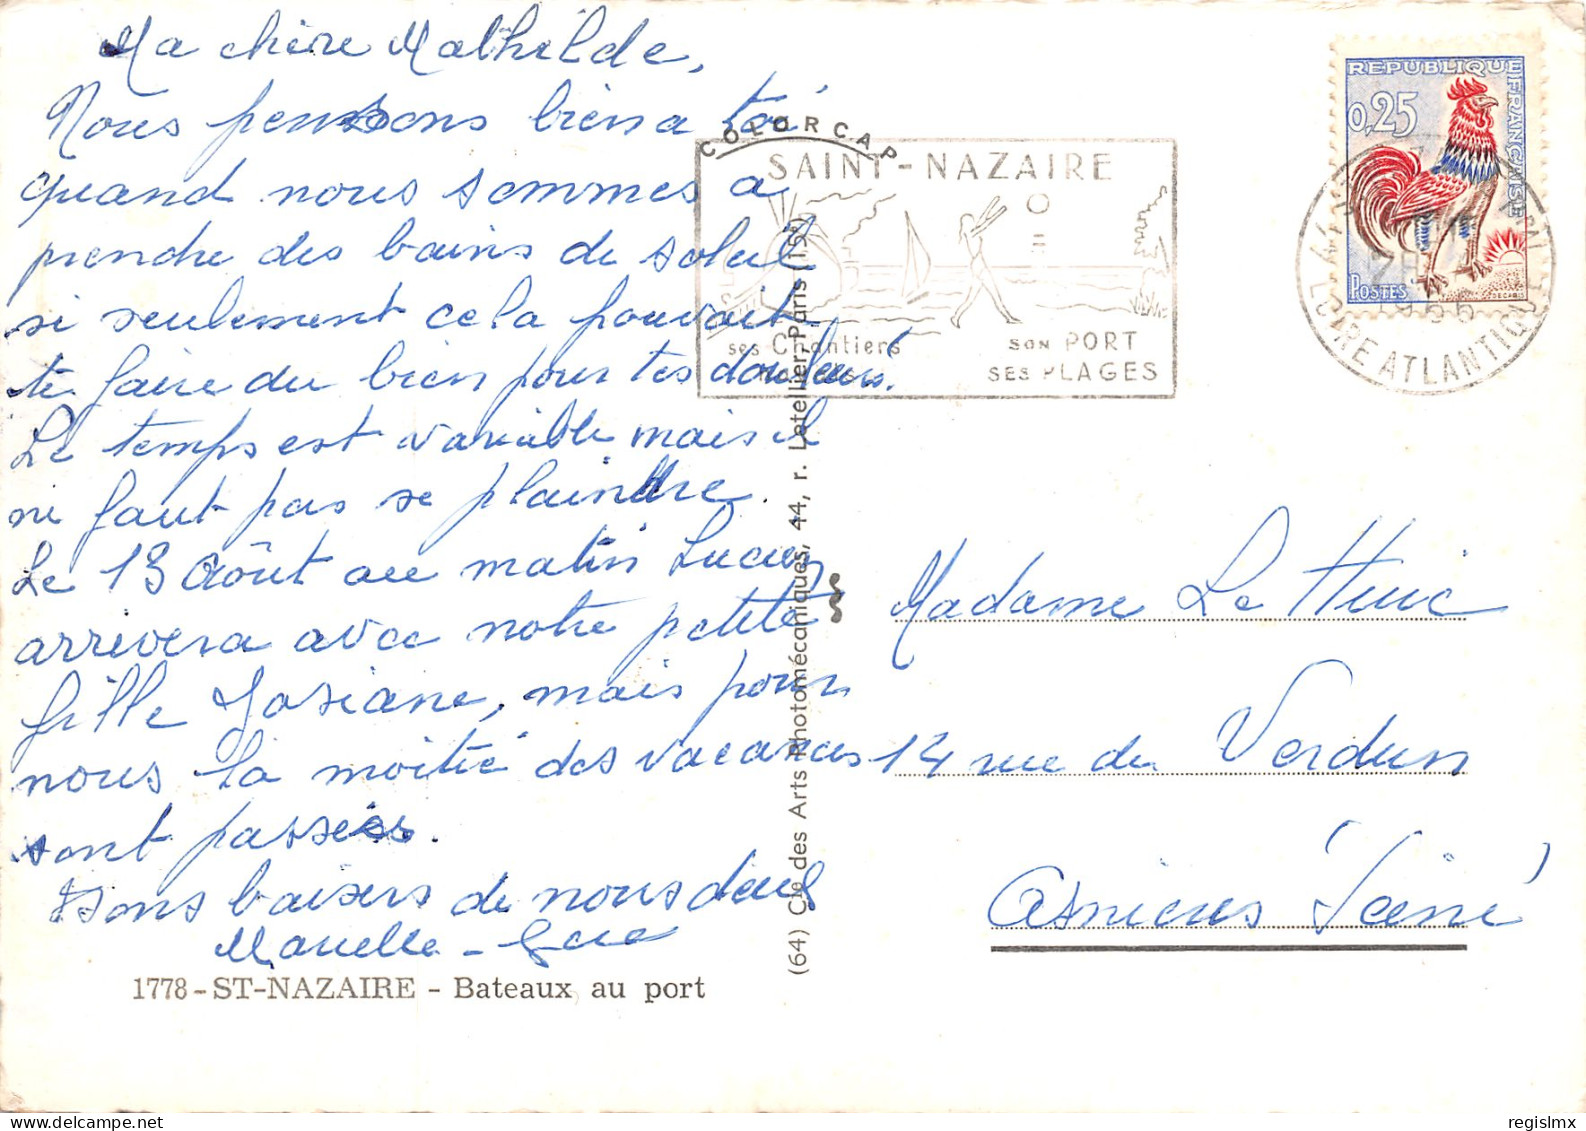 Ma chère Mathilde,
Nous pensons bien a toi
quand nous sommes a
prendre des bains de soleil
si seulement cela pouvait
te faire du bien pour tes douleurs!
Le temps est variable mais il
ne faut pas se plaindre.
Le 13 Août au matin Lucien
arrivera avec notre petite
fille Josiane, mais pour
nous la moitié des vacances
sont passées.
Bons baisers de nous deux
1778 - ST-NAZAIRE - Bateaux au port
COLORCAP
(64) Cie des Arts Photomécaniques, 44, r. Letellier, Paris (15e)
SAINT-NAZAIRE
ses Chantiers
son PORT
SES PLAGES
REPUBLIQUE FRANÇAISE
0,25
POSTES
DECARIS
44
LOIRE ATLANTIQUE
Madame Le Huic
14 rue de Verdun
Asnières Seine
regislmx